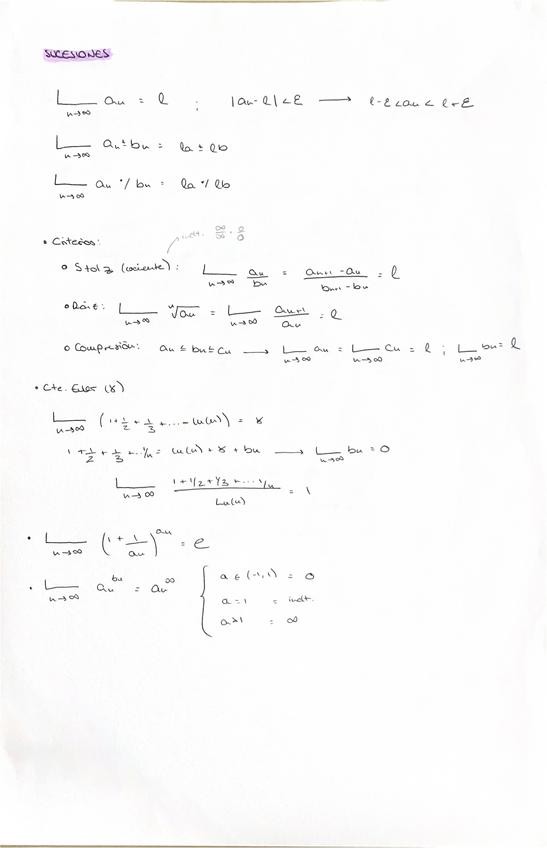 SUCESIONES
L_{n→∞} an = l ; |an - l| < ε ⟶ l-ε < an < l+ε
L_{n→∞} an ± bn = la ± lb
L_{n→∞} an ·/ bn = la ·/ lb
indt. ∞/∞ · 0/0
• Criterios:
o Stolz (cociente): L_{n→∞} an/bn = (an+1 - an)/(bn+1 - bn) = l
L_{n→∞} ⁿ√an = L_{n→∞} an+1/an = l
o Compresión: an ≤ bn ≤ cn ⟶ L_{n→∞} an = L_{n→∞} cn = l ; L_{n→∞} bn = l
• Cte. Euler (γ)
L_{n→∞} (1 + 1/2 + 1/3 + ... - ln(n)) = γ
1 + 1/2 + 1/3 + ... 1/n = ln(n) + γ + bn ⟶ L_{n→∞} bn = 0
L_{n→∞} (1 + 1/2 + 1/3 + ... 1/n)/Ln(n) = 1
• L_{n→∞} (1 + 1/an)^{an} = e
• L_{n→∞} an^{bn} = an^{∞} {
a ∈ (-1,1) = 0
a = 1 = indt.
a > 1 = ∞